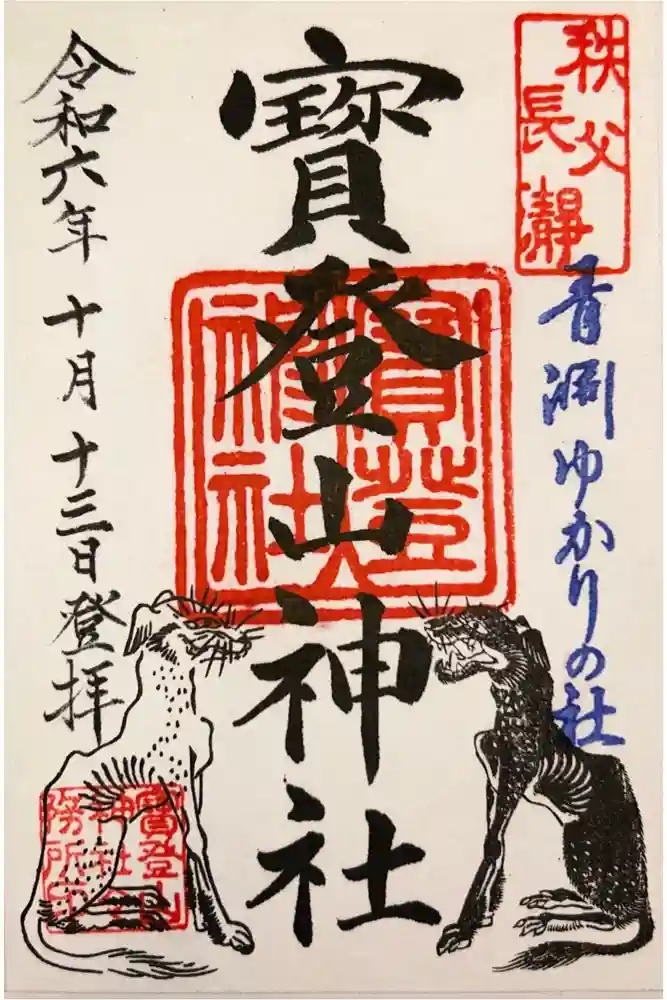 秩父
長瀞
青淵ゆかりの社
寳登山神社
寳登山
神社
令和六年十月十三日登拝
寳登山
神社
務所印